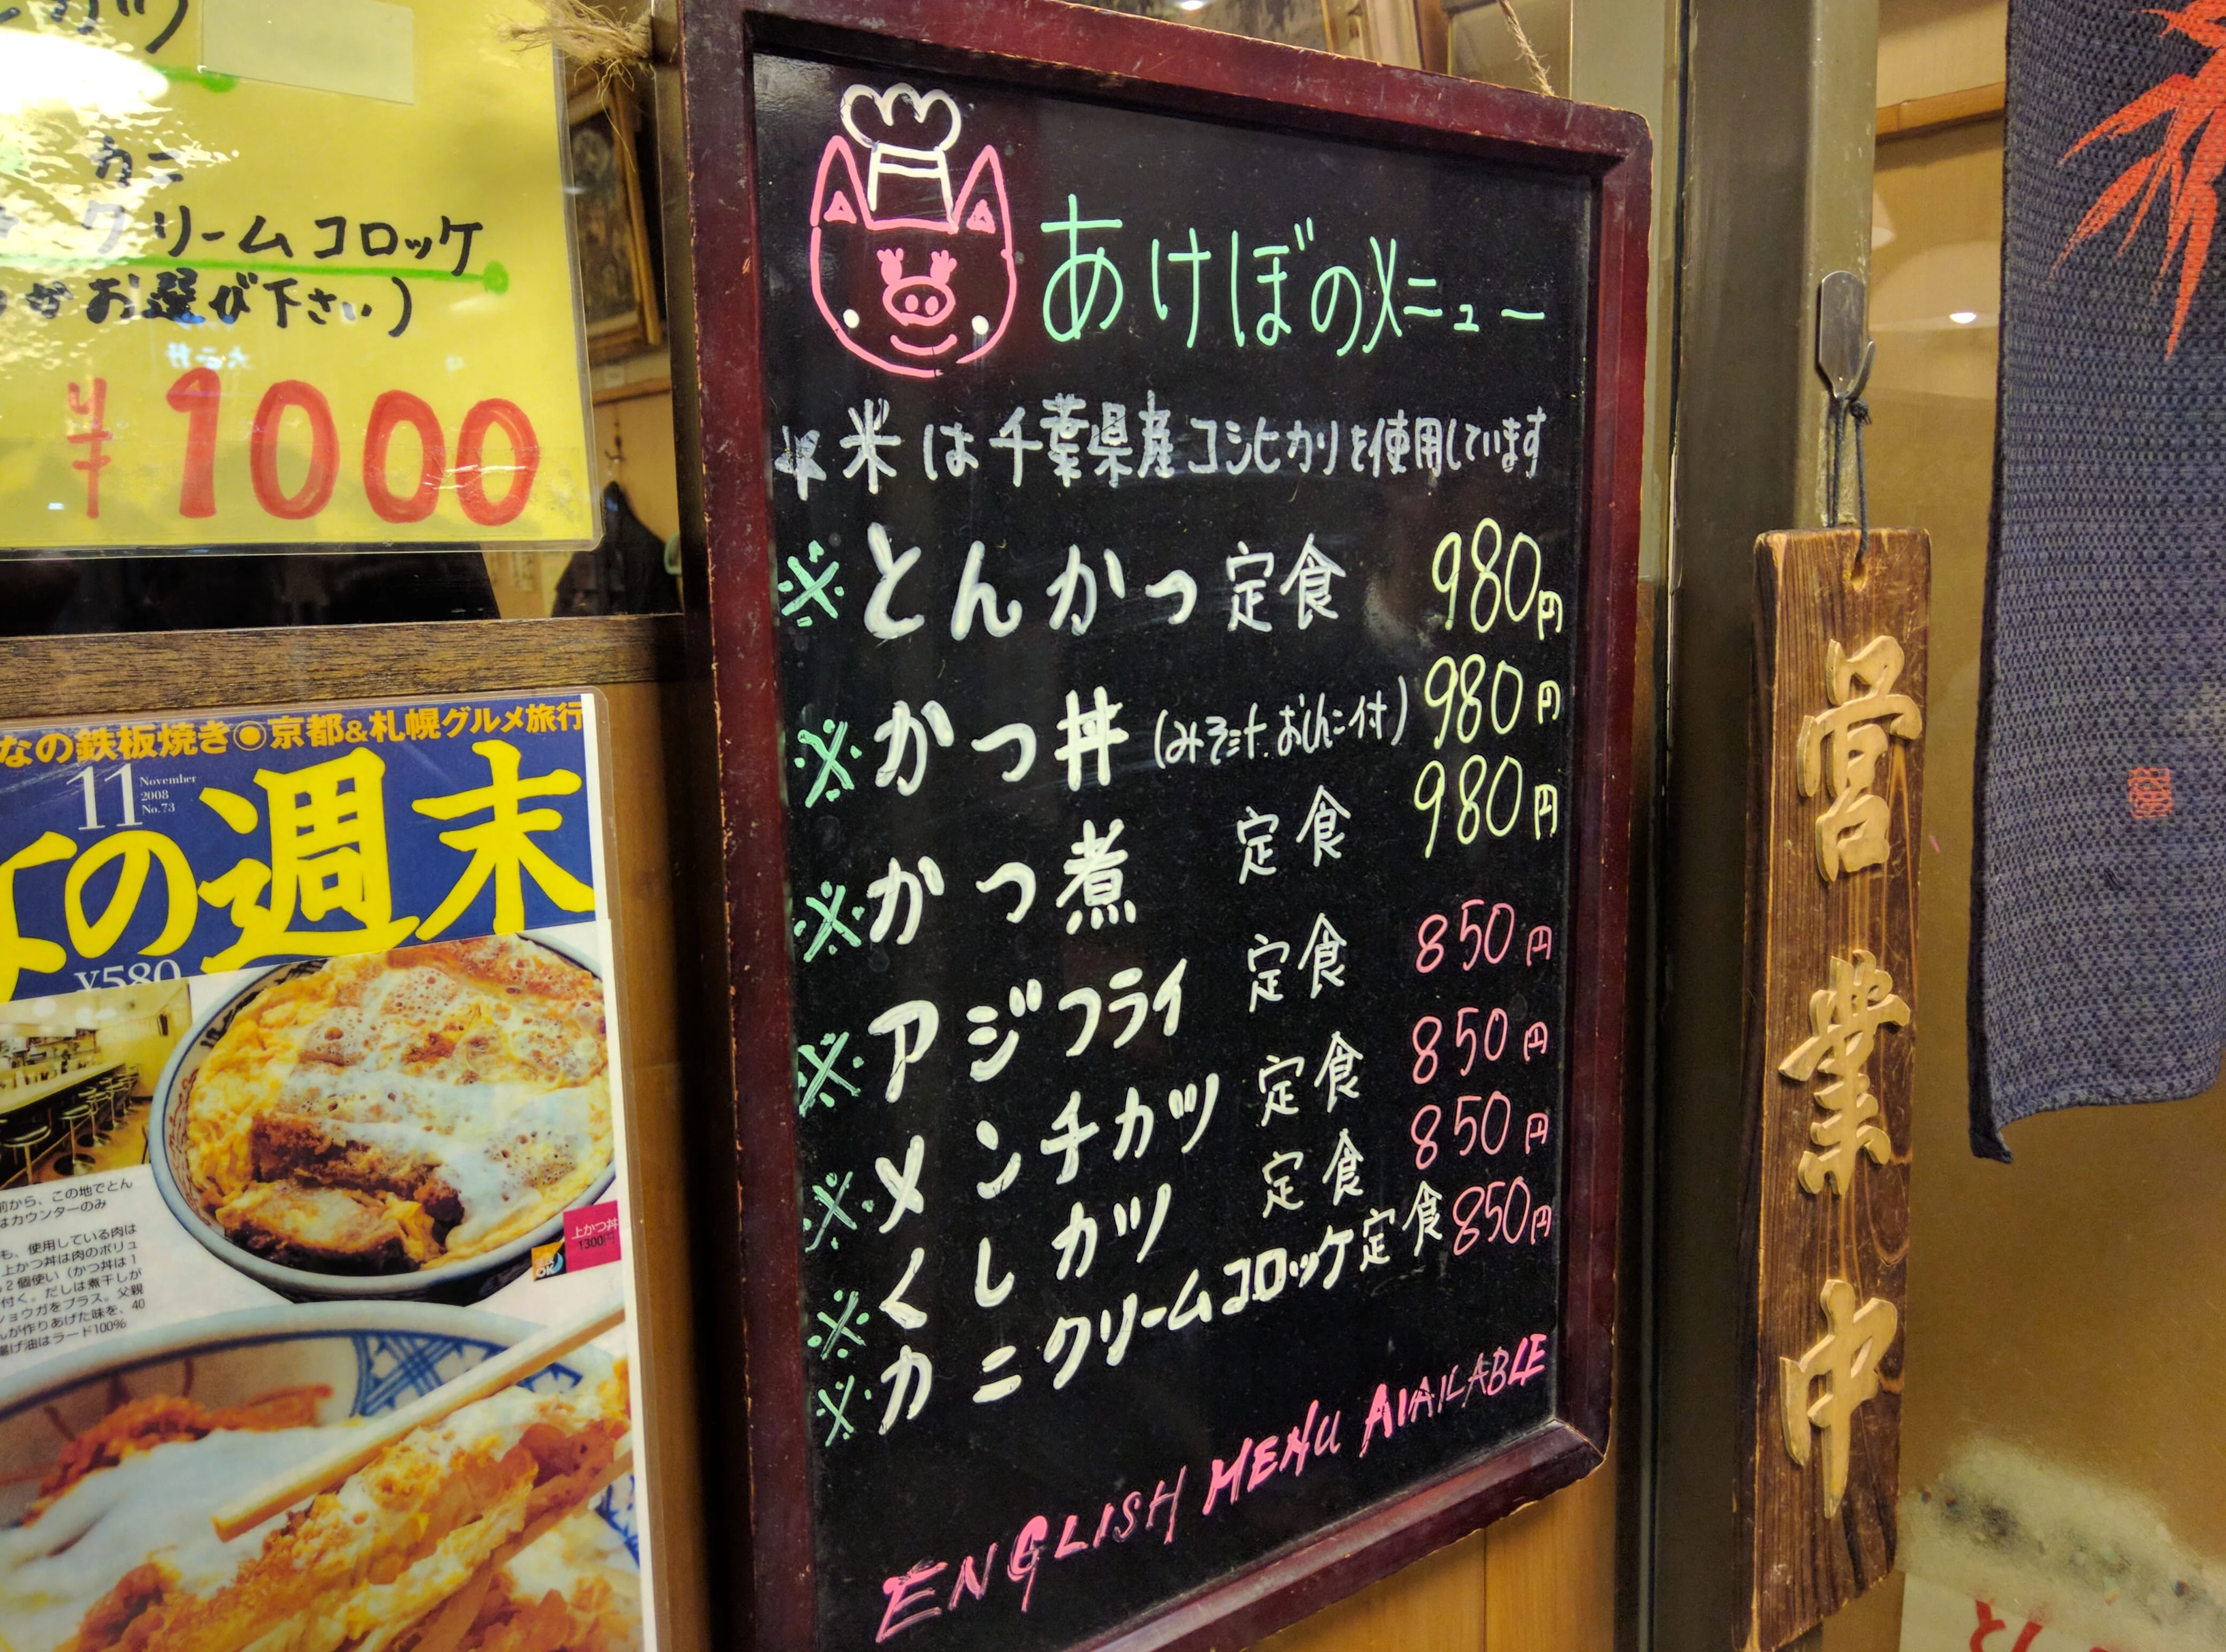 カニ
クリームコロッケ
お選び下さい)
¥1000
なの鉄板焼き◎京都&札幌グルメ旅行
11
November
2008
No.73
の週末
¥580
前から、この地でとん
はカウンターのみ
も、使用している肉は
上かつ丼は肉のボリュ
2個使い(かつ丼は1
付く。だしは煮干しが
ショウガをプラス。父親
んが作りあげた味を、40
揚げ油はラード100%
上かつ丼
1300円
OK
あけぼのメニュー
米は千葉県産コシヒカリを使用しています
※とんかつ定食 980円
※かつ丼(みそ汁.おしんこ付) 980円
※かつ煮 定食 980円
※アジフライ 定食 850円
※メンチカツ 定食 850円
※くしカツ 定食 850円
※カニクリームコロッケ定食 850円
ENGLISH MENU AVAILABLE
営業中
とん